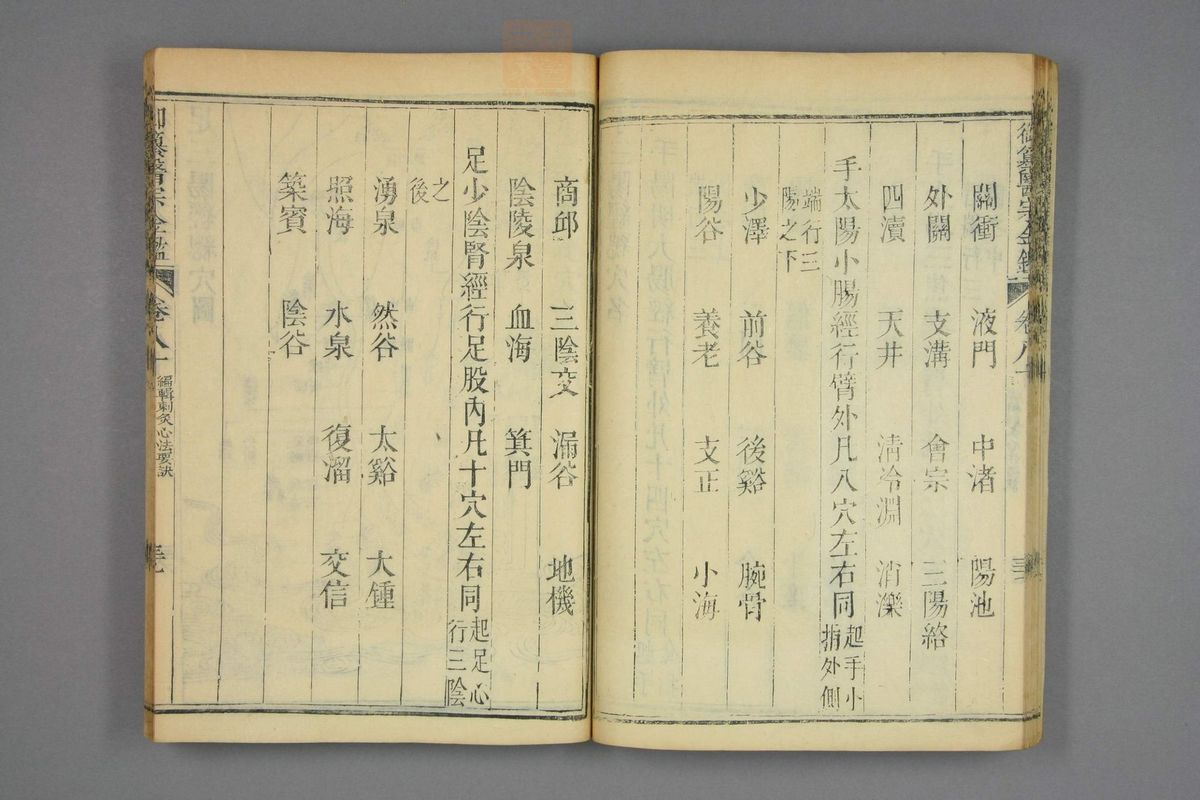 御纂醫宗金鑑
卷八十
關衝 液門 中渚 陽池
外關 支溝 會宗 三陽絡
四瀆 天井 淸冷淵 消濼
手太陽小腸經行臂外凡八穴左右同起手小指外側
端行三陽之下
少澤 前谷 後谿 腕骨
陽谷 養老 支正 小海
商邱 三陰交 漏谷 地機
陰陵泉 血海 箕門
足少陰腎經行足股內凡十穴左右同起足心行三陰
之後
湧泉 然谷 太谿 大鍾
照海 水泉 復溜 交信
築賓 陰谷
御纂醫宗金鑑
卷八十
編輯刺灸心法要訣